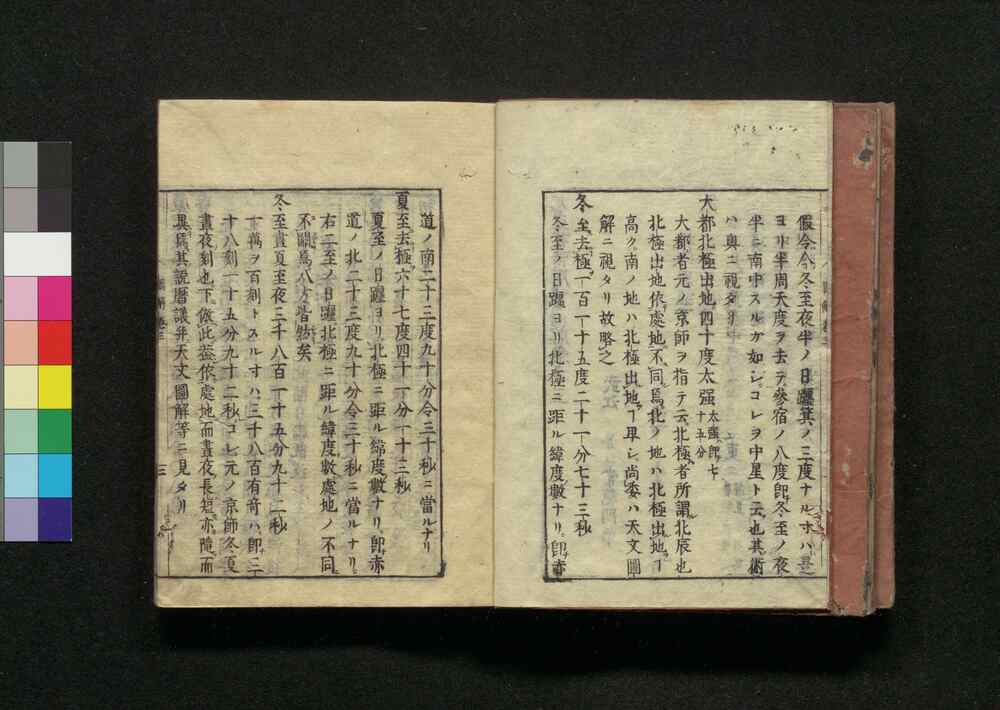 假令今冬至夜半ノ日躔箕ノ三度ナル寸ハ是
ヨリ半周天度ヲ去テ參宿ノ八度卽冬至ノ夜
半ニ南中スルガ如シコレヲ中星ト云也其術
ハ奥ニ視タリ
大都北極出地四十度太强太强ハ卽七十五分
大都者元ノ京師ヲ指テ云北極者所謂北辰也
北極出地依處地不同爲北ノ地ハ北極出地丁
高ク南ノ地ハ北極出地丁卑シ尚委ハ天文圖
解ニ視タリ故略之
冬至去極一百一十五度二十一分七十三秒
冬至ノ日躔ヨリ北極ニ距ル緯度數ナリ卽赤
道ノ南二十三度九十分令三十秒ニ當ルナリ
夏至去極六十七度四十一分一十三秒
夏至ノ日躔ヨリ北極ニ距ル緯度數ナリ卽赤
道ノ北二十三度九十分令三十秒ニ當ルナリ
右二至ノ日躔北極ニ距ル緯度數處地ノ不同
不關爲八方皆物矣
冬至晝夏至夜三千八百一十五分九十二秒
一萬ヲ百刻トスル寸ハ三千八百有奇ハ卽三
十八刻一十五分九十二秒コレ元ノ京師冬夏
晝夜刻也下倣此蓋依處地而晝夜長短亦隨而
異焉其說曆議并天文圖解等ニ見タリ
三